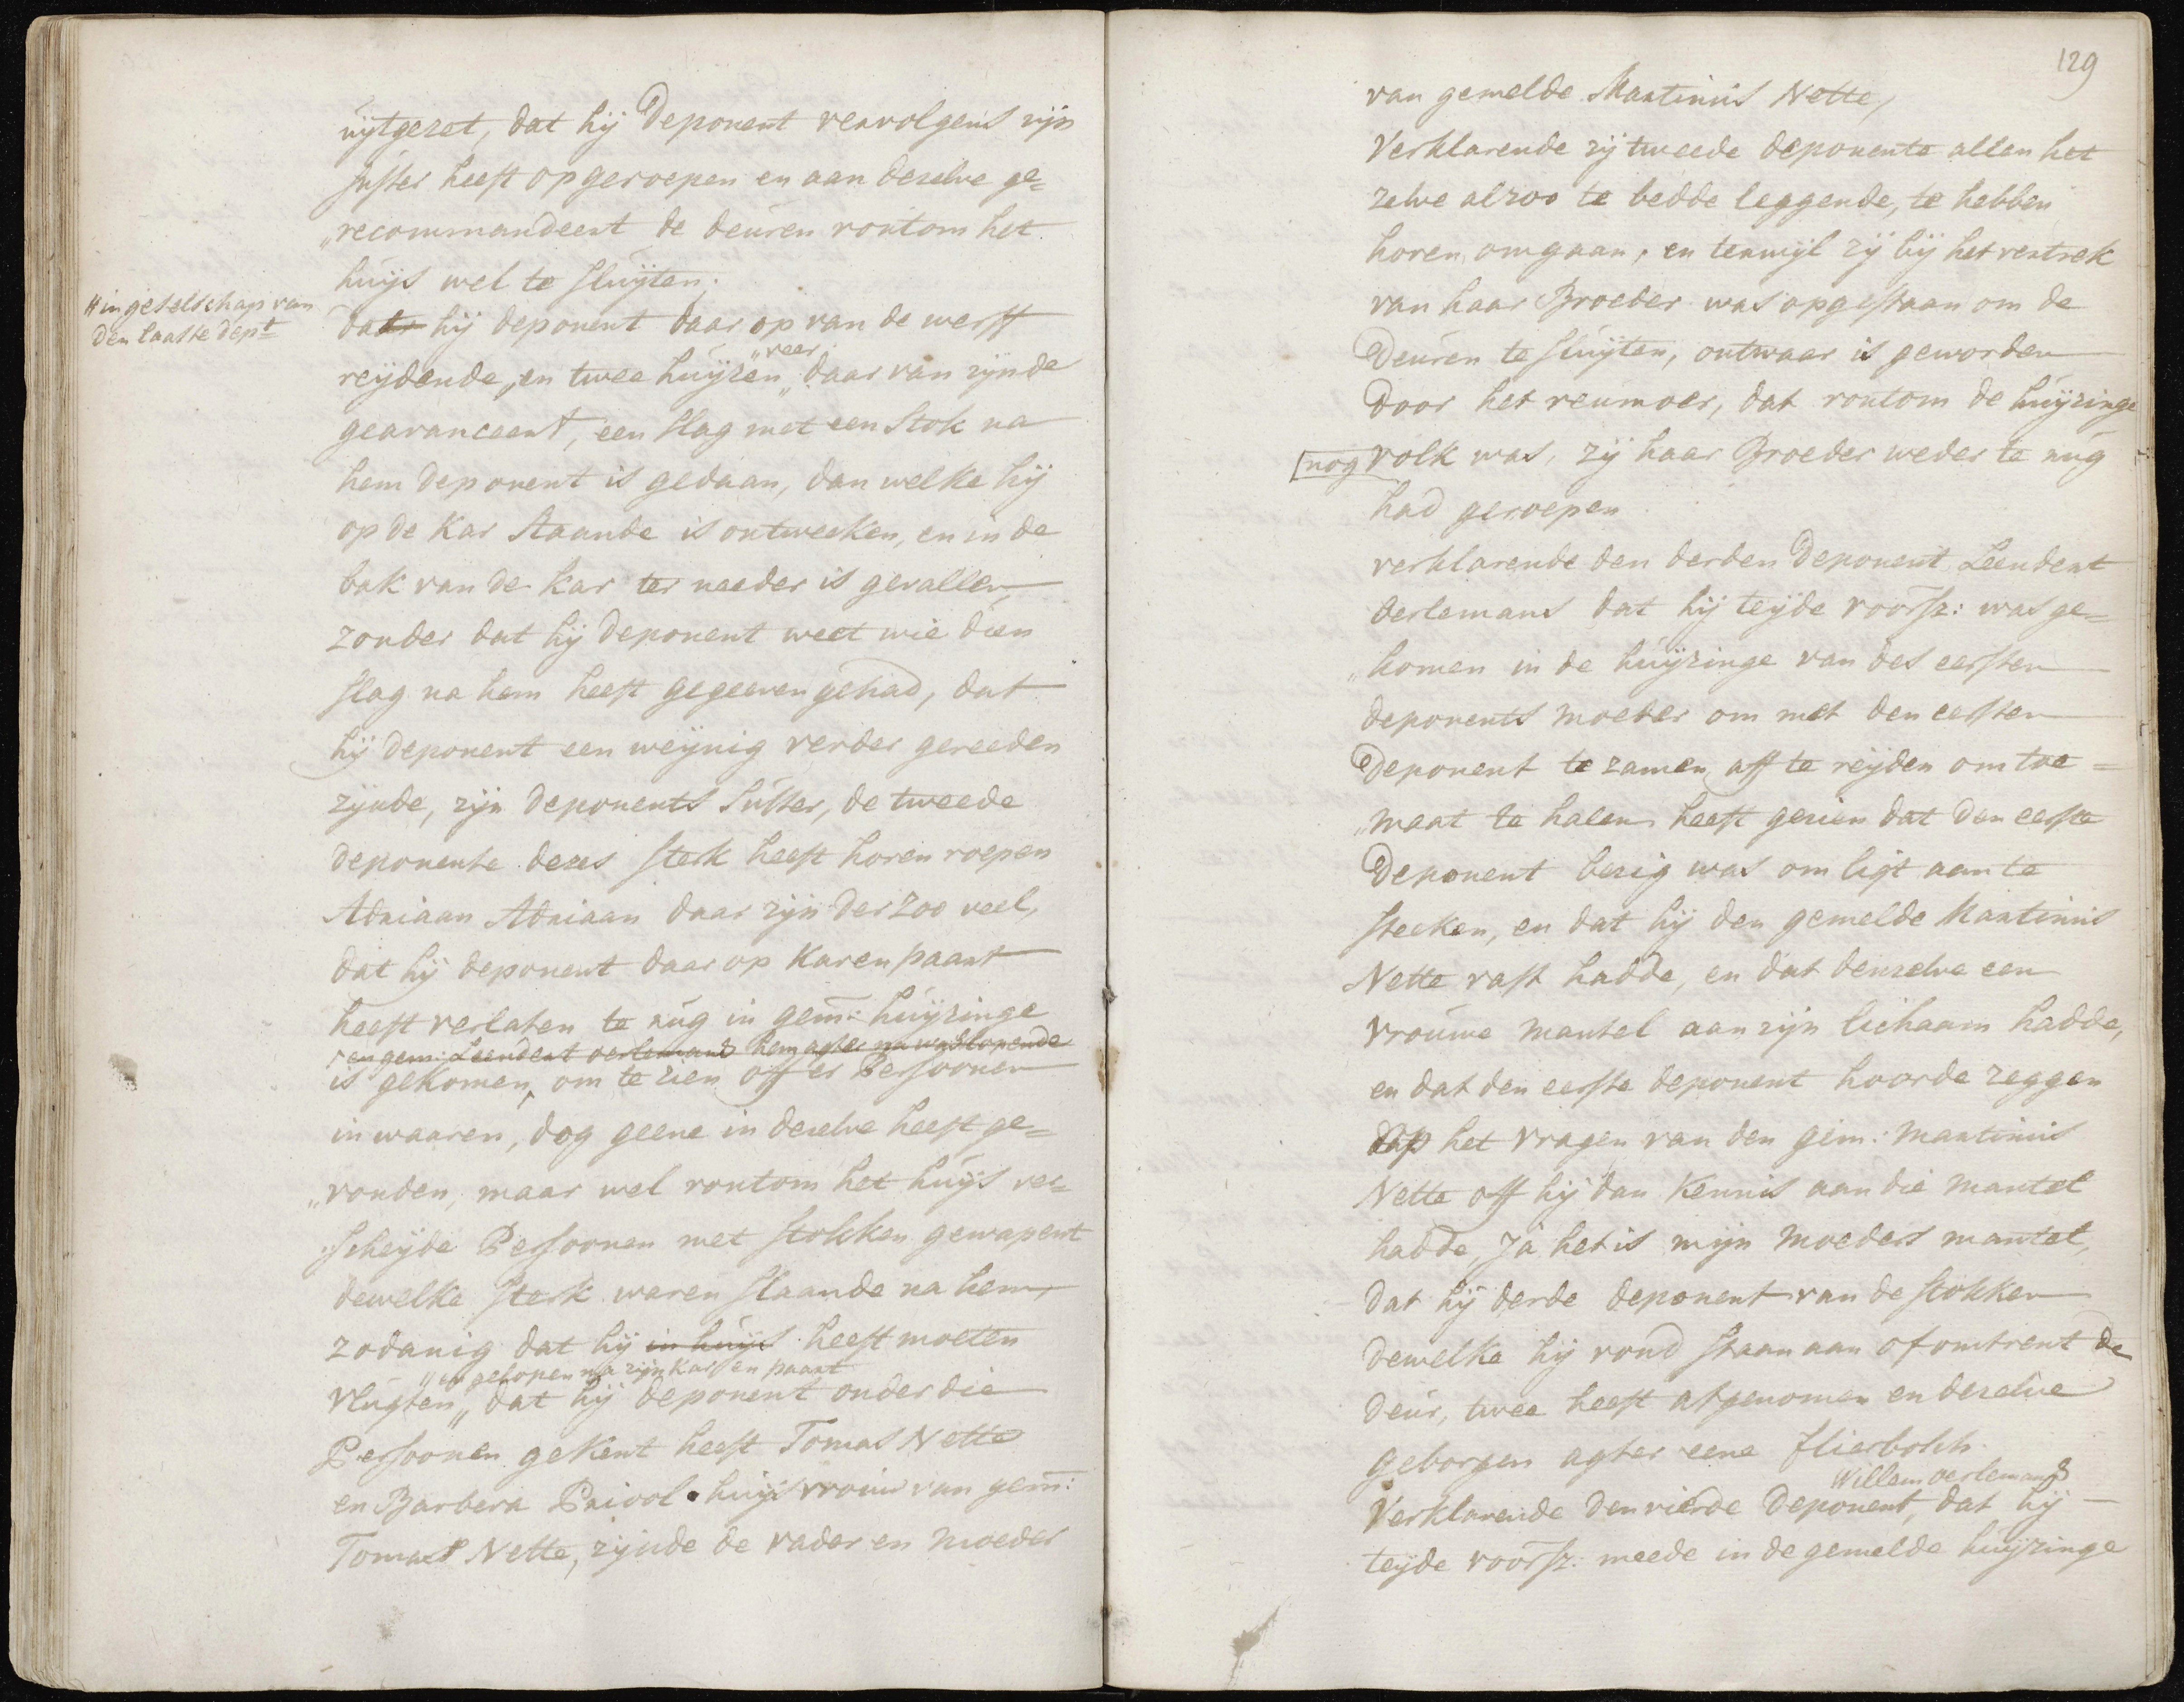 uÿtgezet, dat hÿ Deponent vervolgens zijn
suster heeft opgeroepen en aan deselve ge=
„recommandeert de deuren rontom het
huijs wel te sluÿten;
# in geselschap van
den laaste dep.t
dat hij deponent daar op van de werff
reÿdende, en twee huÿzen „veer daar van zijnde
geavanceert, een slag met een stok na
hem deponent is gedaan, dan welke hij
op de kar staande is ontweeken, en in de
bak van de kar ter needer is gevallen,
zonder dat hij deponent weet wie dien
slag na hem heeft gegeeven gehad, dat
hij deponent een weÿnig verder gereeden
zijnde, zijn deponents suster, de tweede
deponente dezes sterk heeft horen roepen
Adriaan Adriaan daar zijn der zoo veel,
dat hij deponent daar op kar en paart
heeft verlaten te rug in gem: huÿzinge
en gem: Leendert oerlemans hem agter na was lopende
is gekomen, om te zien off er Persoonen
in waaren, dog geene in deselve heeft ge=
„vonden, maar wel rontom het huÿs ver=
scheÿde Persoonen met stokken gewapent
dewelke sterk waren slaande na hem,
zodanig dat hij in huijs heeft moeten
„en gelopen na zijn kar en paart
vlugten„ dat hij deponent onder die
Persoonen gekent heeft Tomas Nette
en Barbera Priool huijsvrouw van gem:
Tomas Nette, zijnde de vader en moeder
129
van gemelde Martinus Nette,
Verklarende zij tweede deponente allen het
zelve alzoo te bedde leggende, te hebben
horen omgaan, en terwijl zij bij het vertrek
van haar Broeder was opgestaan om de
Deuren te sluÿten, ontwaar is geworden
door het reumoer, dat rontom de huÿzinge
nog volk was, zij haar Broeder weder te rug
had geroepen
verklarende den derden Deponent Leendert
Oerlemans dat hij teÿde voorsz: was ge=
„komen in de huÿzinge van des eersten
deponents moeder om met den eersten
Deponent te zamen aff te reÿden om toe=
„maat te halen heeft gezien dat den eerste
Deponent bezig was om ligt aan te
steeken, en dat hij den gemelde Martinus
Nette vast hadde, en dat denzelve een
vrouwe mantel aan zijn lichaam hadde,
en dat den eerste deponent hoorde zeggen
op het vragen van den gem: martinus
Nette off hij dan kennis aan die mantel
hadde, Ja het is mijn moeders mantel,
dat hij derde deponent van de stokken
dewelke hij vond staan aan of omtrent de
deur, twee heeft afgenomen en dezelve
geborgen agter eene flierbosch.
Willem oerlemans
Verklarende den vierde Deponent, dat hij
teÿde voorsz: meede in de gemelde huÿzinge